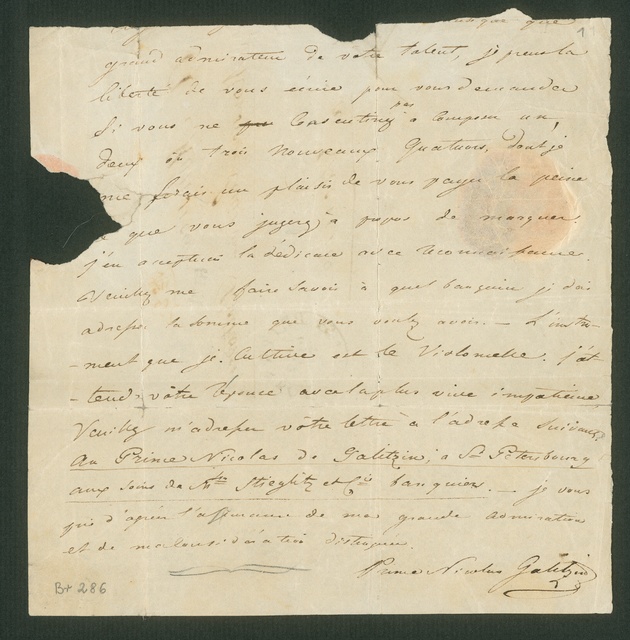 que
1
grand admirateur de votre talent, je prens la
liberté de vous écrire pour vous demander
si vous ne consentiriez pas a composer un,
deux ou trois nouveaux Quatuors, dont je
me ferais un plaisir de vous payer la peine
ce que vous jugerez à propos de marquer.
j'en accepterai la dédicace avec reconnaissance.
Veuillez me faire savoir à quel banquier je dois
adresser la somme que vous voulez avoir. – L'instru-
-ment que je cultive est le Violoncelle. j'at-
-tends vôtre réponse avec la plus vive impatience
Veuillez m'adresser vôtre lettre à l'adresse suivante
Au Prince Nicolas de Galitzin, à St Petersbourg
aux soins de Mrs Stieglitz et Cie banquiers. – je vous
prie d'agréer l'assurance de ma grande admiration
et de ma considération distinguée.
Prince Nicolas Galitzin
B+ 286